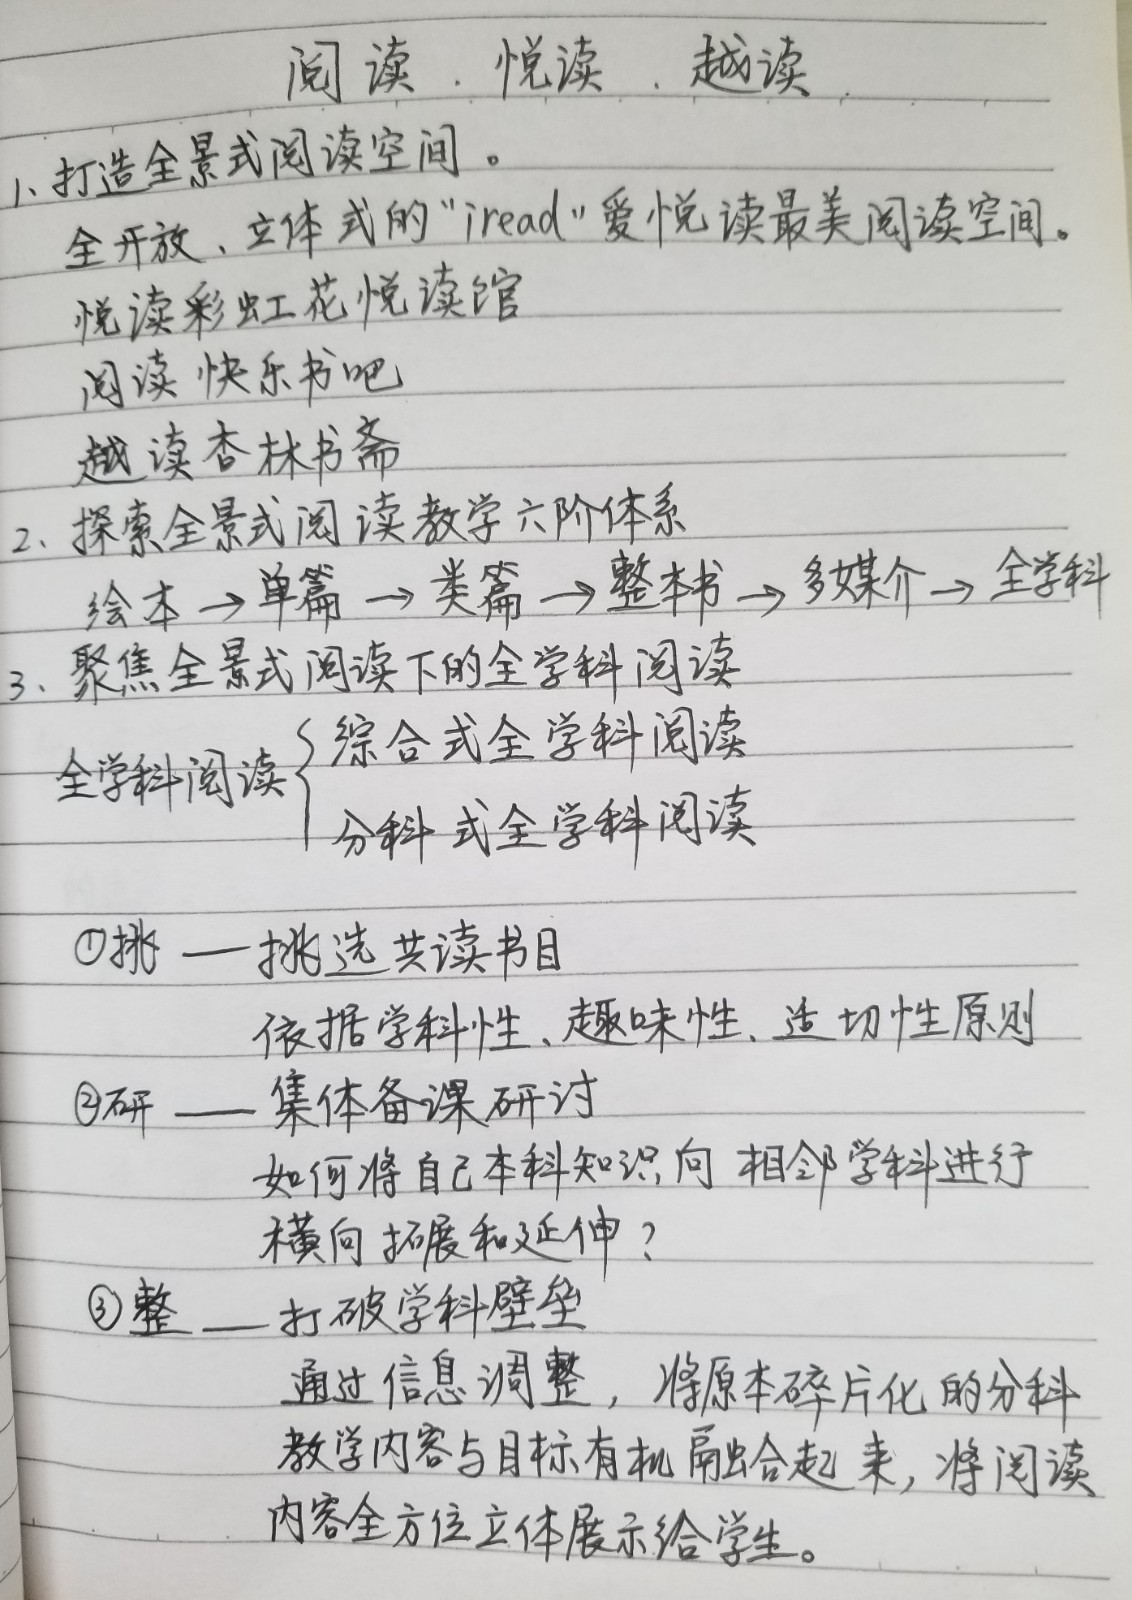 阅读．悦读．越读．
1、打造全景式阅读空间。
全开放、立体式的"iread"爱悦读最美阅读空间。
悦读彩虹花悦读馆
阅读快乐书吧
越读杏林书斋
2、探索全景式阅读教学六阶体系
绘本→单篇→类篇→整本书→多媒介→全学科
3、聚焦全景式阅读下的全学科阅读
全学科阅读{综合式全学科阅读
分科式全学科阅读
①挑——挑选共读书目
依据学科性、趣味性、适切性原则
②研——集体备课研讨
如何将自己本科知识向相邻学科进行
横向拓展和延伸?
③整——打破学科壁垒
通过信息调整，将原本碎片化的分科
教学内容与目标有机融合起来，将阅读
内容全方位立体展示给学生。